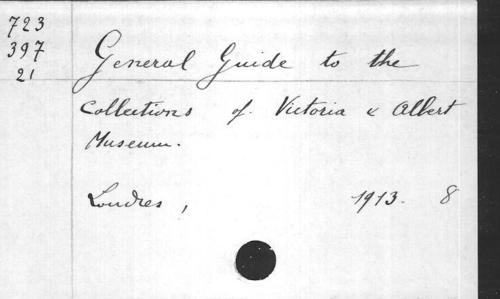 723
397
21
General Guide to the
Collections of Victoria & Albert
Museum.
Londres, 1913. 8